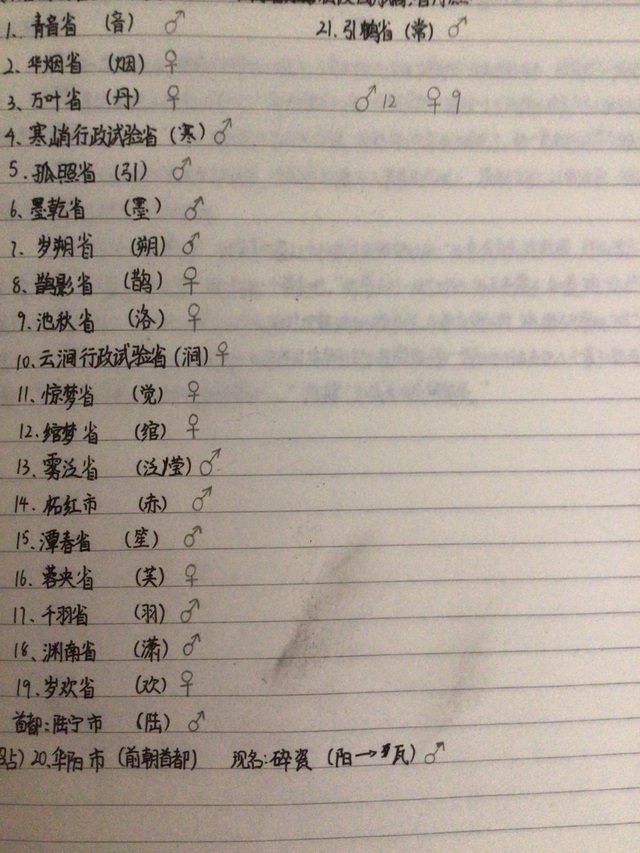 1. 青音省 (音) ♂
21. 引鹅省 (常) ♂
2. 华烟省 (烟) ♀
3. 万叶省 (丹) ♀
♂12 ♀9
4. 寒峭行政试验省 (寒) ♂
5. 孤照省 (引) ♂
6. 墨乾省 (墨) ♂
7. 岁朔省 (朔) ♂
8. 鹊影省 (鹊) ♀
9. 池秋省 (洛) ♀
10. 云涧行政试验省 (涧) ♀
11. 惊梦省 (觉) ♀
12. 绾梦省 (绾) ♀
13. 雾泛省 (泛滢) ♂
14. 柘红市 (赤) ♂
15. 潭春省 (笙) ♂
16. 蓉央省 (芙) ♀
17. 千羽省 (羽) ♂
18. 渊南省 (潇) ♂
19. 岁欢省 (欢) ♀
首都:陆宁市 (陆) ♂
占) 20. 华阳市 (前朝首都) 现名:碎瓷 (阳→瓦) ♂